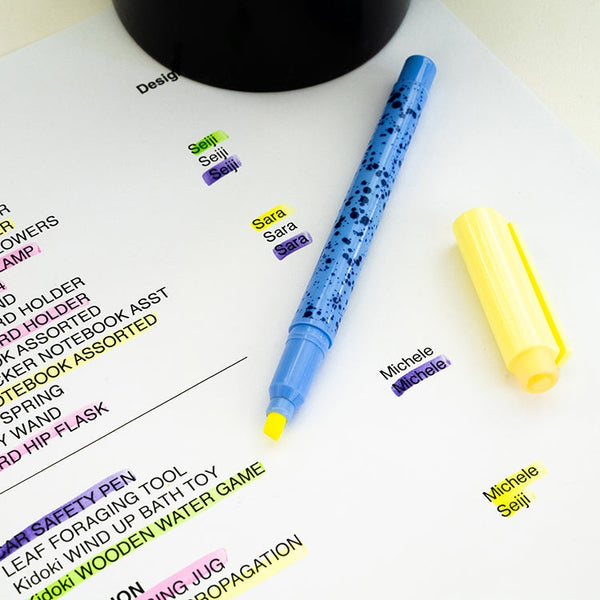 Desig
Seiji
Seiji
Seiji
Sara
Sara
Sara
LOWERS
LAMP
ARD HOLDER
RD HOLDER
OK ASSORTED
CKER NOTEBOOK ASST
NOTEBOOK ASSORTED
SPRING
Y WAND
RD HIP FLASK
Michele
Michele
Michele
Seiji
CAR SAFETY PEN
LEAF FORAGING TOOL
Kidoki WIND UP BATH TOY
Kidoki WOODEN WATER GAME
ION
ING JUG
PROPAGATION